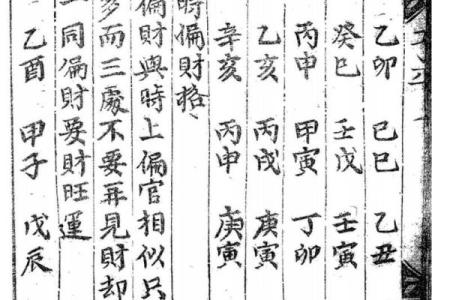 乙卯 己巳 乙丑
癸巳 壬戌 壬寅
丙申 甲寅 丁卯
乙亥 丙戌 庚寅
辛亥 丙申 庚寅
時偏財格
偏財與時上偏官相似只
多而三處不要再見財却
一同偏財要財旺運
乙酉 甲子 戊辰